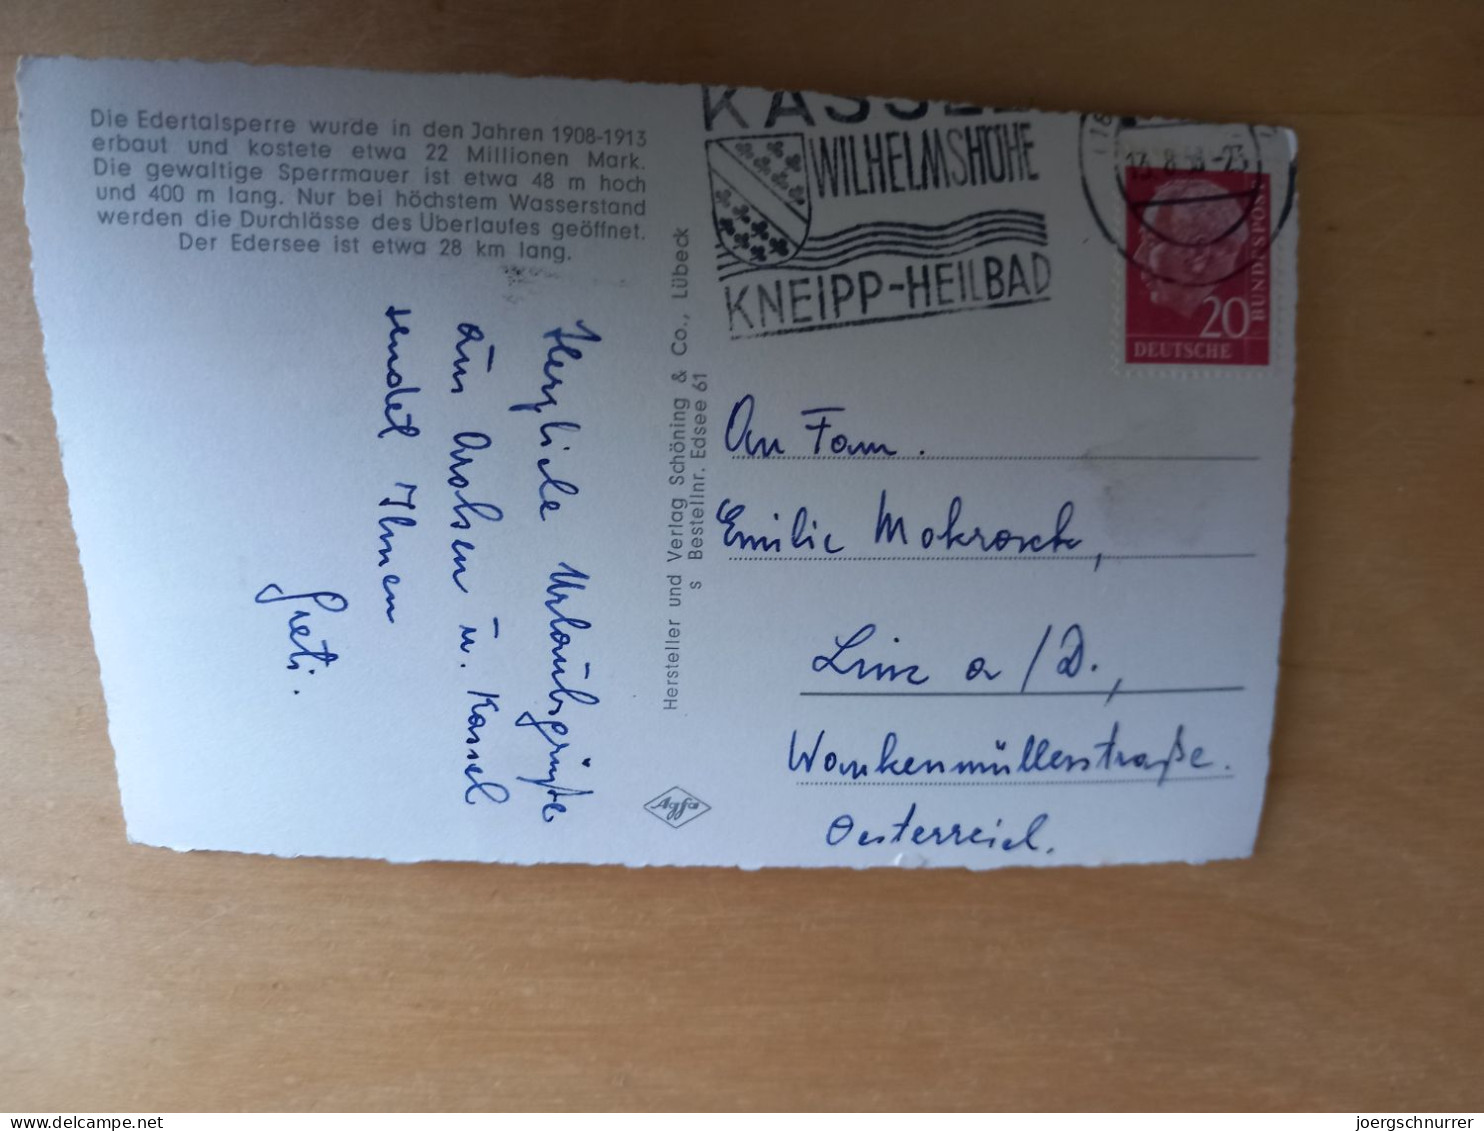 Die Edertalsperre wurde in den Jahren 1908-1913
erbaut und kostete etwa 22 Millionen Mark.
Die gewaltige Sperrmauer ist etwa 48 m hoch
und 400 m lang. Nur bei höchstem Wasserstand
werden die Durchlässe des Uberlaufes geöffnet.
Der Edersee ist etwa 28 km lang.
Herzliche Urlaubsgrüße
aus Arolsen u. Kassel
sendet Ihnen
Greti.
Hersteller und Verlag Schöning & Co., Lübeck
s Bestellnr. Edsee 61
Agfa
KASSEL
WILHELMSHÖHE
KNEIPP-HEILBAD
13.8.58-23
20
BUNDESPOST
DEUTSCHE
An Fam.
Emilie Mokrosch,
Linz a/D.,
Wankenmüllerstraße.
Oesterreich.
delcampe.net
joergschnurrer